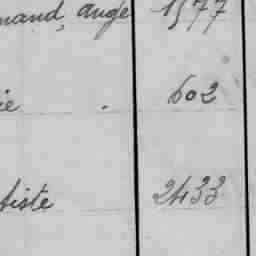 mand, ange 1577
ie . 602
tiste 2433